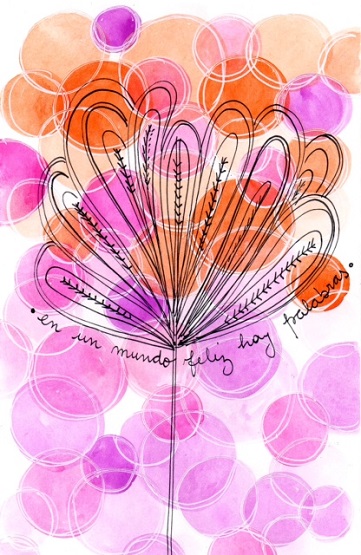 • en un mundo feliz hay palabras •